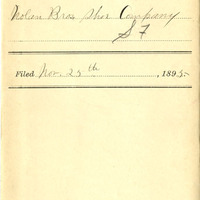 Nolan Bros Shoe Company
S F
Filed Nov. 25th, 1895